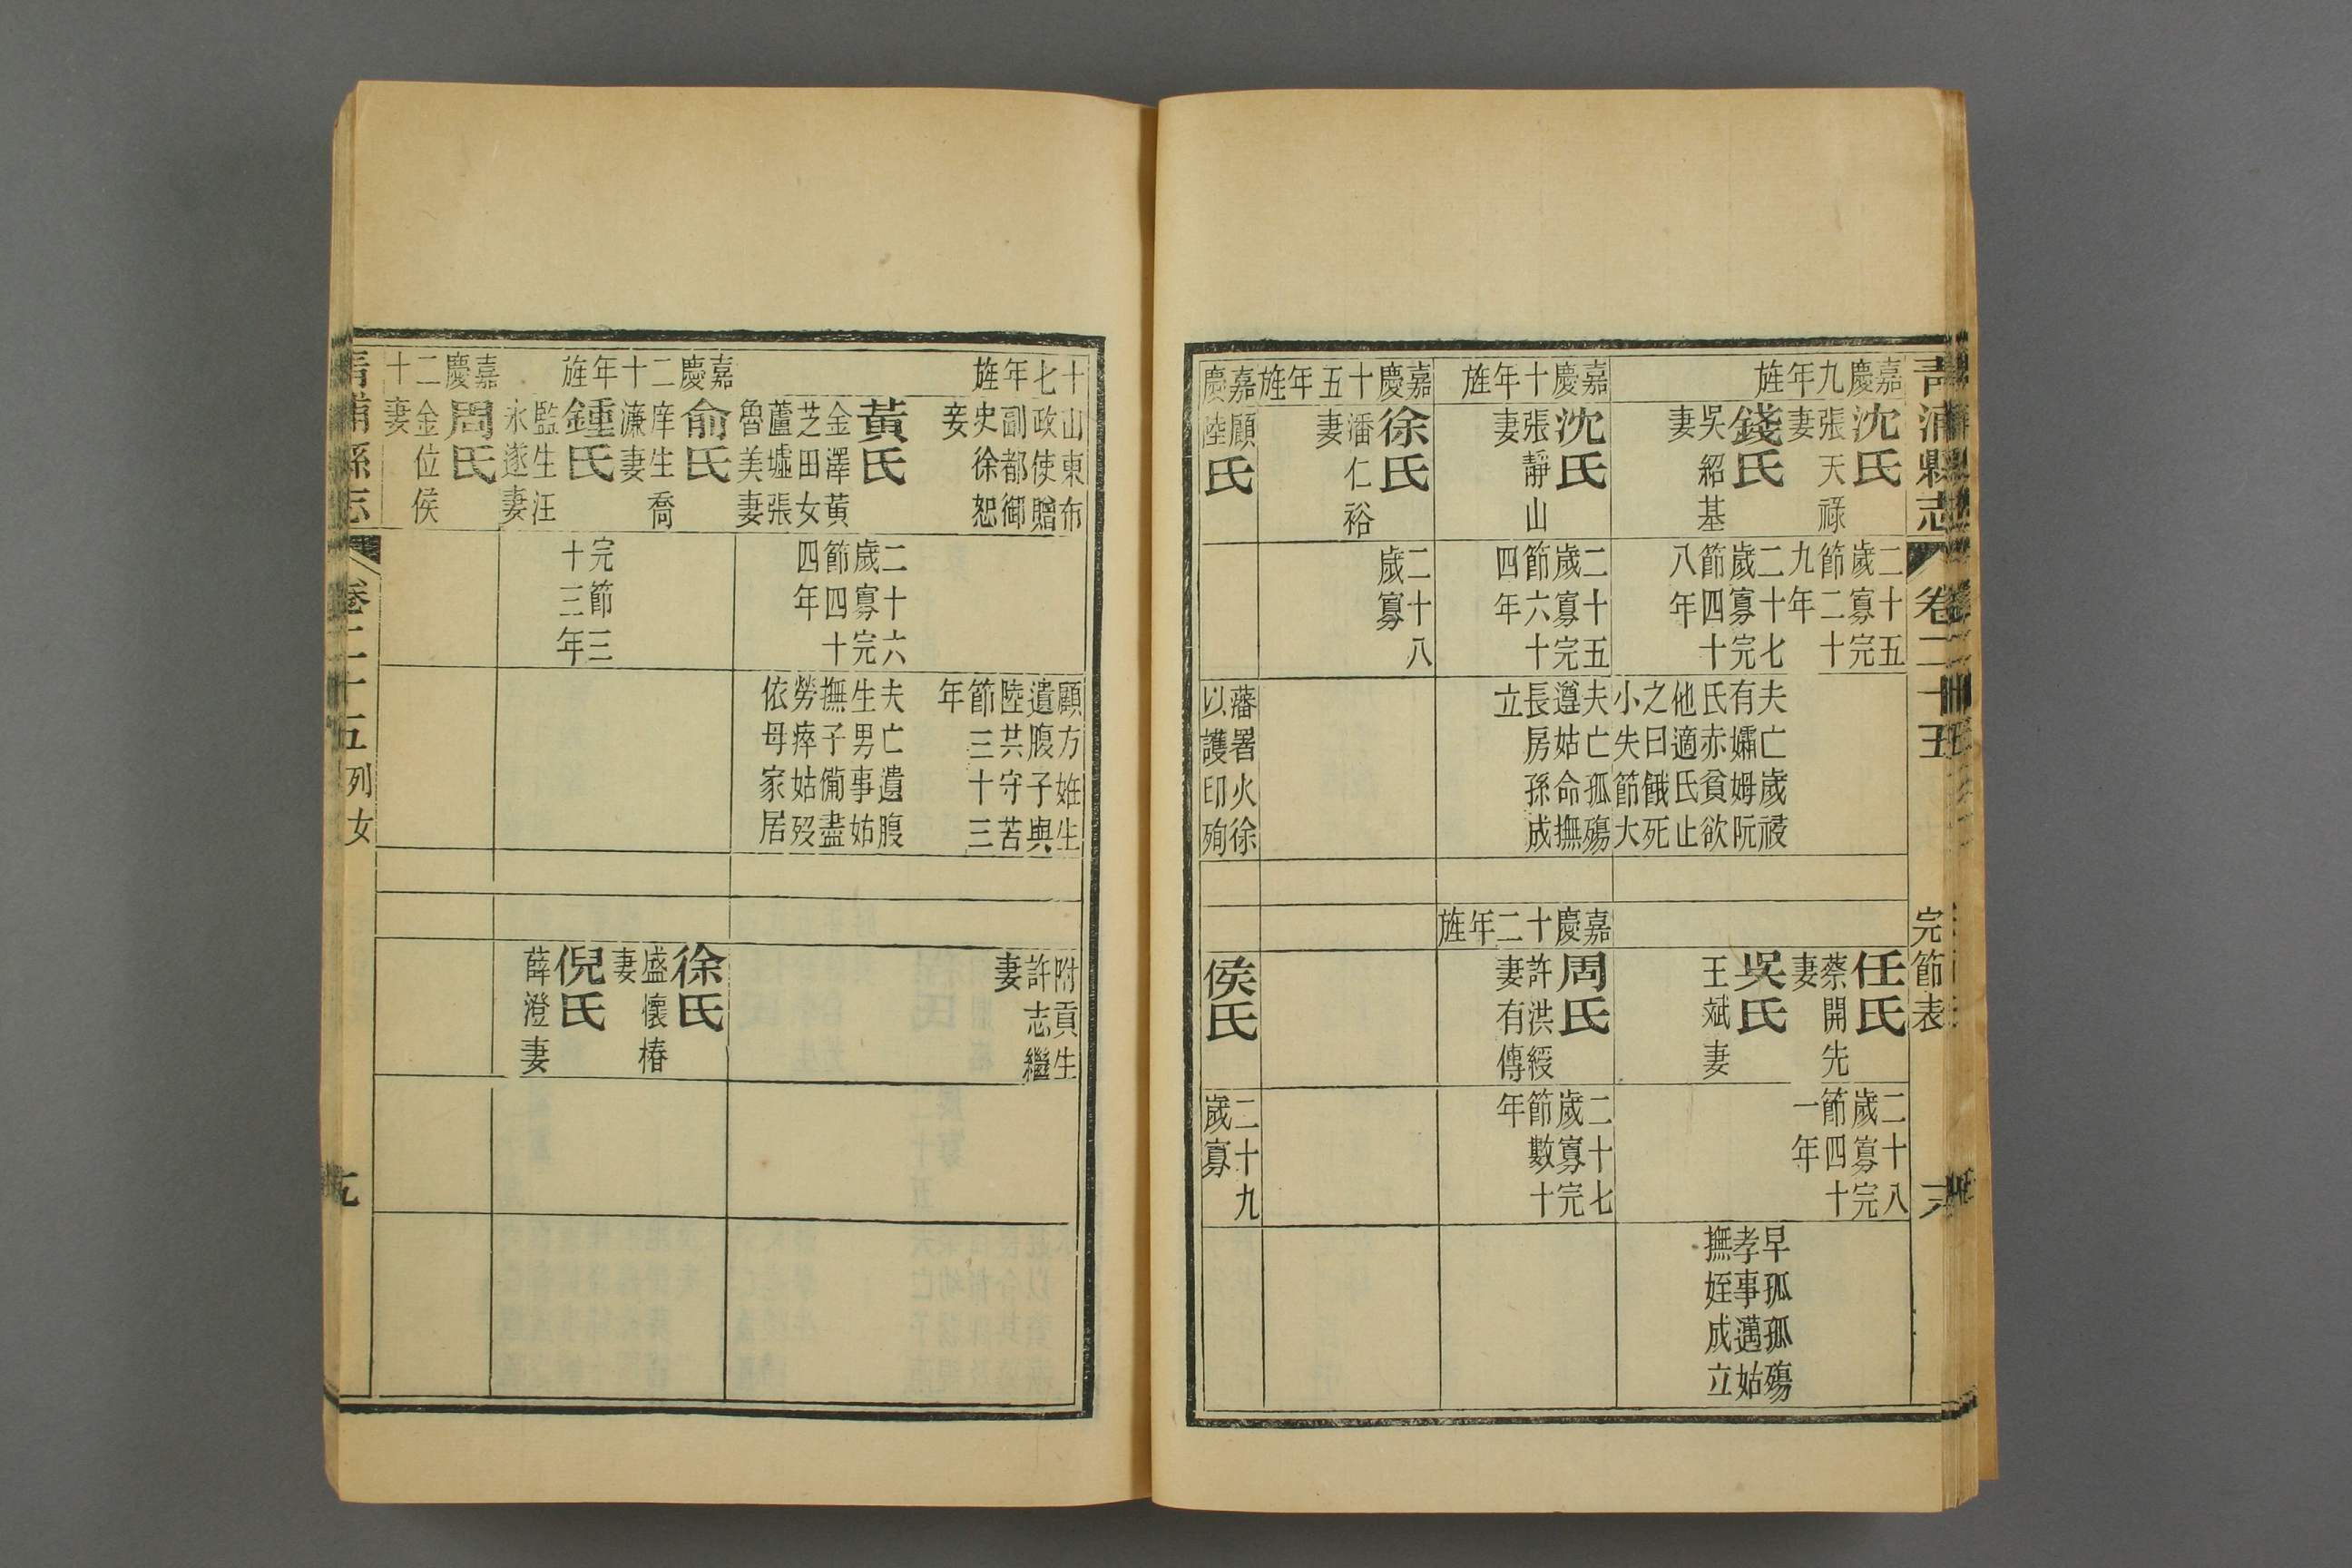 青浦縣志 卷二十五 完節表
嘉慶九年旌
沈氏
張天祿
妻
錢氏
吳紹基
妻
嘉慶十年旌
沈氏
張靜山
妻
嘉慶十五年旌
徐氏
潘仁裕
妻
嘉慶
顧
陸
氏
二十五
歲寡完
節二十
九年
二十七
歲寡完
節四十
八年
二十五
歲寡完
節六十
四年
二十八
歲寡
夫亡歲祲
有孀姆阮
氏赤貧欲
他適氏止
之曰餓死
小失節大
夫亡孤殤
遵姑命撫
長房孫成
立
藩署火徐
以護印殉
任氏
蔡開先
妻
吳氏
王斌妻
嘉慶十二年旌
周氏
許洪綬
妻有傳
侯氏
二十八
歲寡完
節四十
一年
二十七
歲寡完
節數十
年
二十九
歲寡
早孤孤殤
孝事邁姑
撫姪成立
十七年旌
山東布
政使贈
副都御
史徐恕
妾
黃氏
金澤黃
芝田女
蘆墟張
魯美妻
嘉慶二十年旌
俞氏
庠生喬
濂妻
鍾氏
監生汪
永遂妻
嘉慶二十
周氏
金位侯
妻
二十六
歲寡完
節四十
四年
完節三
十三年
顧方娠生
遺腹子與
陸共守苦
節三十三
年
夫亡遺腹
生男事姑
撫子備盡
勞瘁姑歿
依母家居
附貢生
許志繼
妻
徐氏
盛懷椿
妻
倪氏
薛澄妻
青浦縣志 卷二十五 列女